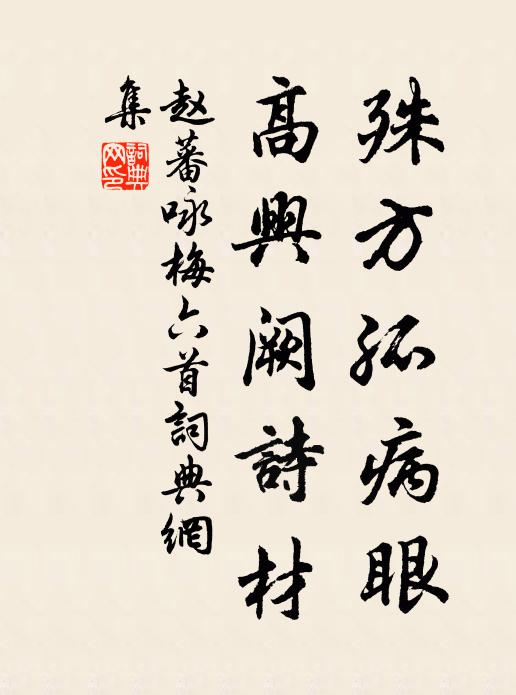 殊方孤病眼
高興闕詩材
赵蕃咏梅六首詞典網
集
詞典網印